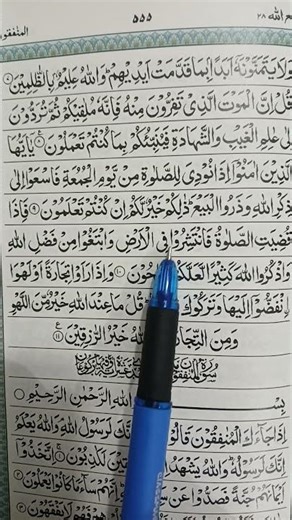 المنفقو ٥٥٥ ع الله ٢٨
وَلَا يَتَمَنَّوْنَهٗۤ اَبَدًۢا بِمَا قَدَّمَتْ اَيْدِيْهِمْ ؕ وَاللّٰهُ عَلِيْمٌۢ بِالظّٰلِمِيْنَ ۝۷
قُلْ اِنَّ الْمَوْتَ الَّذِيْ تَفِرُّوْنَ مِنْهُ فَاِنَّهٗ مُلٰقِيْكُمْ ثُمَّ تُرَدُّوْنَ
اِلٰى عٰلِمِ الْغَيْبِ وَالشَّهَادَةِ فَيُنَبِّئُكُمْ بِمَا كُنْتُمْ تَعْمَلُوْنَ ۝۸ يٰۤاَيُّهَا
الَّذِيْنَ اٰمَنُوْۤا اِذَا نُوْدِيَ لِلصَّلٰوةِ مِنْ يَّوْمِ الْجُمُعَةِ فَاسْعَوْا اِلٰى
ذِكْرِ اللّٰهِ وَذَرُوا الْبَيْعَ ؕ ذٰلِكُمْ خَيْرٌ لَّكُمْ اِنْ كُنْتُمْ تَعْلَمُوْنَ ۝۹ فَاِذَا
قُضِيَتِ الصَّلٰوةُ فَانْتَشِرُوْا فِي الْاَرْضِ وَابْتَغُوْا مِنْ فَضْلِ اللّٰهِ
وَاذْكُرُوا اللّٰهَ كَثِيْرًا لَّعَلَّكُمْ حُوْنَ ۝۱۰ وَاِذَا رَاَوْا تِجَارَةً اَوْ لَهْوَا
انْفَضُّوْۤا اِلَيْهَا وَتَرَكُوْكَ قُلْ مَا عِنْدَ اللّٰهِ خَيْرٌ مِّنَ اللَّهْوِ
وَمِنَ التِّجَا خَيْرُ الرّٰزِقِيْنَ ۝۱۱
بِسْ اللّٰهِ الرَّحْمٰنِ الرَّحِيْمِ
اِذَا جَآءَكَ الْمُنٰفِقُوْنَ قَالُوْا اِنَّكَ لَرَسُوْلُ اللّٰهِ ۘ وَاللّٰهُ يَعْلَمُ
اِنَّكَ لَرَسُوْلُهٗ ؕ وَاللّٰهُ يَشْهَدُ لَكٰذِبُوْنَ ۝۱ اِتَّخَذُوْۤا
اَيْمَانَهُمْ جُنَّةً فَصَدُّوْا عَنْ سَ اِنَّهُمْ سَآءَ مَا كَانُوْا يَعْمَلُوْنَ ۝۲
فَهُمْ لَا يَفْقَهُوْنَ ۝۳